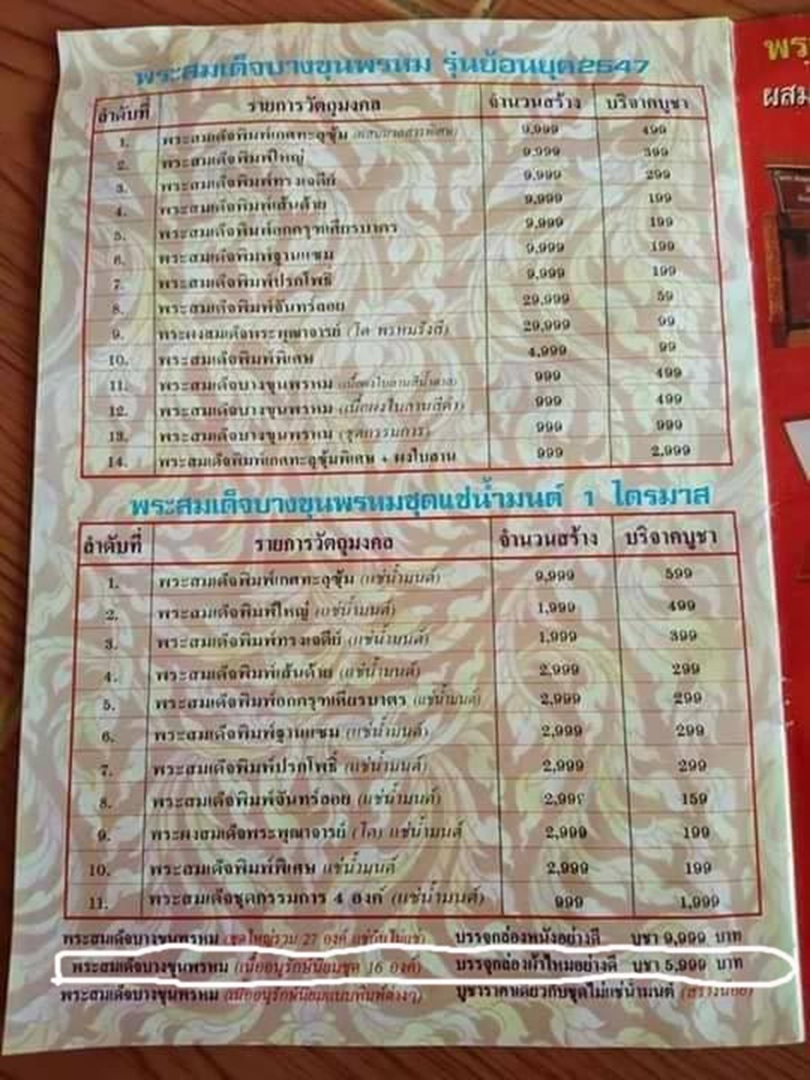 พระสมเด็จบางขุนพรหม รุ่นย้อนยุค2547
ลำดับที่ รายการวัตถุมงคล จำนวนสร้าง บริจาคบูชา
1. พระสมเด็จพิมพ์เกศทะลุซุ้ม 9,999 499
2. พระสมเด็จพิมพ์ใหญ่ 9,999 399
3. พระสมเด็จพิมพ์ทรงเจดีย์ 9,999 299
4. พระสมเด็จพิมพ์เส้นด้าย 9,999 199
5. พระสมเด็จพิมพ์อกครุฑเศียรบาตร 9,999 199
6. พระสมเด็จพิมพ์ฐานแซม 9,999 199
7. พระสมเด็จพิมพ์ปรกโพธิ์ 9,999 199
8. พระสมเด็จพิมพ์จันทร์ลอย 29,999 59
9. พระผงสมเด็จพระพุฒาจารย์ (โต พรหมรังสี) 29,999 99
10. พระสมเด็จพิมพ์พิเศษ 4,999 99
11. พระสมเด็จบางขุนพรหม (เนื้อผงใบลานสีน้ำตาล) 999 499
12. พระสมเด็จบางขุนพรหม (เนื้อผงใบลานสีดำ) 999 499
13. พระสมเด็จบางขุนพรหม (ชุดกรรมการ) 999 999
14. พระสมเด็จพิมพ์เกศทะลุซุ้มพิเศษ + ผงใบลาน 999 2,999
พระสมเด็จบางขุนพรหมชุดแช่น้ำมนต์ 1 ไตรมาส
ลำดับที่ รายการวัตถุมงคล จำนวนสร้าง บริจาคบูชา
1. พระสมเด็จพิมพ์เกศทะลุซุ้ม (แช่น้ำมนต์) 9,999 599
2. พระสมเด็จพิมพ์ใหญ่ (แช่น้ำมนต์) 1,999 499
3. พระสมเด็จพิมพ์ทรงเจดีย์ (แช่น้ำมนต์) 1,999 399
4. พระสมเด็จพิมพ์เส้นด้าย (แช่น้ำมนต์) 2,999 299
5. พระสมเด็จพิมพ์อกครุฑเศียรบาตร (แช่น้ำมนต์) 2,999 299
6. พระสมเด็จพิมพ์ฐานแซม (แช่น้ำมนต์) 2,999 299
7. พระสมเด็จพิมพ์ปรกโพธิ์ (แช่น้ำมนต์) 2,999 299
8. พระสมเด็จพิมพ์จันทร์ลอย (แช่น้ำมนต์) 2,999 159
9. พระผงสมเด็จพระพุฒาจารย์ (โต) แช่น้ำมนต์ 2,999 199
10. พระสมเด็จพิมพ์พิเศษ แช่น้ำมนต์ 2,999 199
11. พระสมเด็จชุดกรรมการ 4 องค์ (แช่น้ำมนต์) 999 1,999
พระสมเด็จบางขุนพรหม (ชุดใหญ่รวม 27 องค์ บรรจุกล่องหนังอย่างดี บูชา 9,999 บาท
พระสมเด็จบางขุนพรหม (เนื้ออนุรักษ์นิยมชุด 16 องค์) บรรจุกล่องผ้าไหมอย่างดี บูชา 5,999 บาท
พระสมเด็จบางขุนพรหม (เนื้ออนุรักษ์นิยมแบบพิมพ์ต่างๆ) บูชาราคาเดียวกับชุดไม่แช่น้ำมนต์ (สร้างน้อย)
พร
ผสม